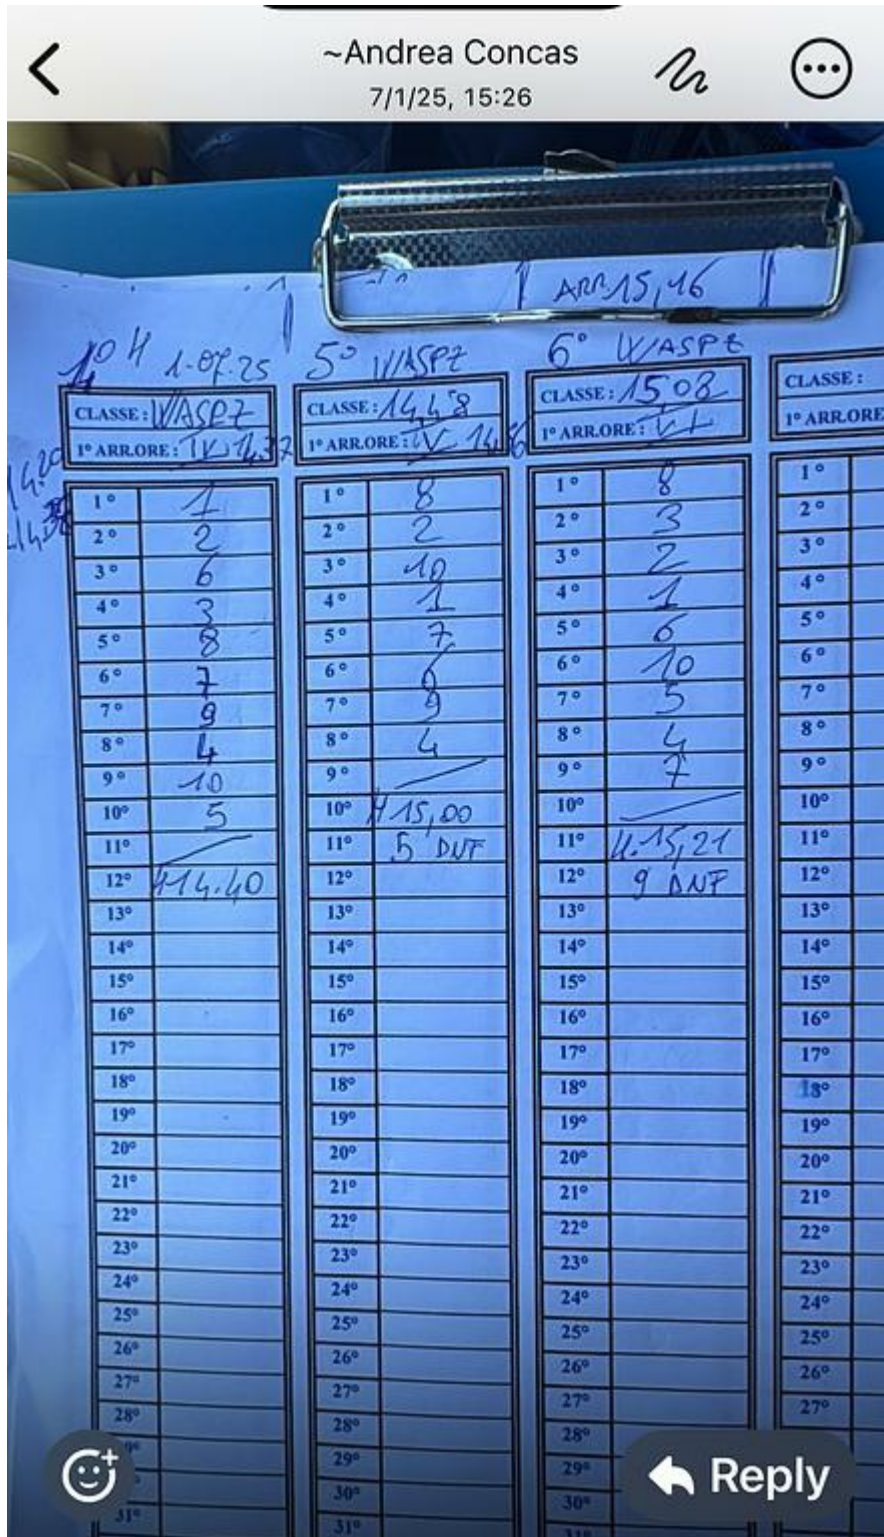 ~Andrea Concas
7/1/25, 15:26
ARR 15,16
1-07-25
CLASSE: WASPZ
1° ARR.ORE: IV 14,37
1° 1
2° 2
3° 6
4° 3
5° 8
6° 7
7° 9
8° 4
9° 10
10° 5
11°
12° H 14.40
13°
14°
15°
16°
17°
18°
19°
20°
21°
22°
23°
24°
25°
26°
27°
28°
31°
5° WASPZ
CLASSE: 14,48
1° ARR.ORE: V 14,56
1° 8
2° 2
3° 10
4° 1
5° 7
6° 6
7° 9
8° 4
9°
10° H 15,00
11° 5 DNF
12°
13°
14°
15°
16°
17°
18°
19°
20°
21°
22°
23°
24°
25°
26°
27°
28°
29°
30°
31°
6° WASPZ
CLASSE: 15,08
1° ARR.ORE: VI
1° 8
2° 3
3° 2
4° 1
5° 6
6° 10
7° 5
8° 4
9° 7
10°
11° H.15,21
12° 9 DNF
13°
14°
15°
16°
17°
18°
19°
20°
21°
22°
23°
24°
25°
26°
27°
28°
29°
30°
CLASSE:
1° ARR.ORE
1°
2°
3°
4°
5°
6°
7°
8°
9°
10°
11°
12°
13°
14°
15°
16°
17°
18°
19°
20°
21°
22°
23°
24°
25°
26°
27°
Reply